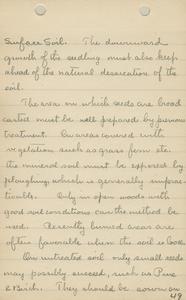 Surface Soil. The downward
growth of the seedling must also keep
ahead of the natural desiccation of the
soil.
The area on which seeds are broad
casted must be well prepared by previous
treatment. On areas covered with
vegetation such as grass fern etc.
the mineral soil must be exposed by
ploughing, which is generally imprac-
ticable. Only in open woods with
good soil conditions can the method be
used. Recently burned areas are
often favorable when the soil is loose.
On untreated soil only small seeds
may possibly succeed, such as Pine
& Birch. They should be sown on
49